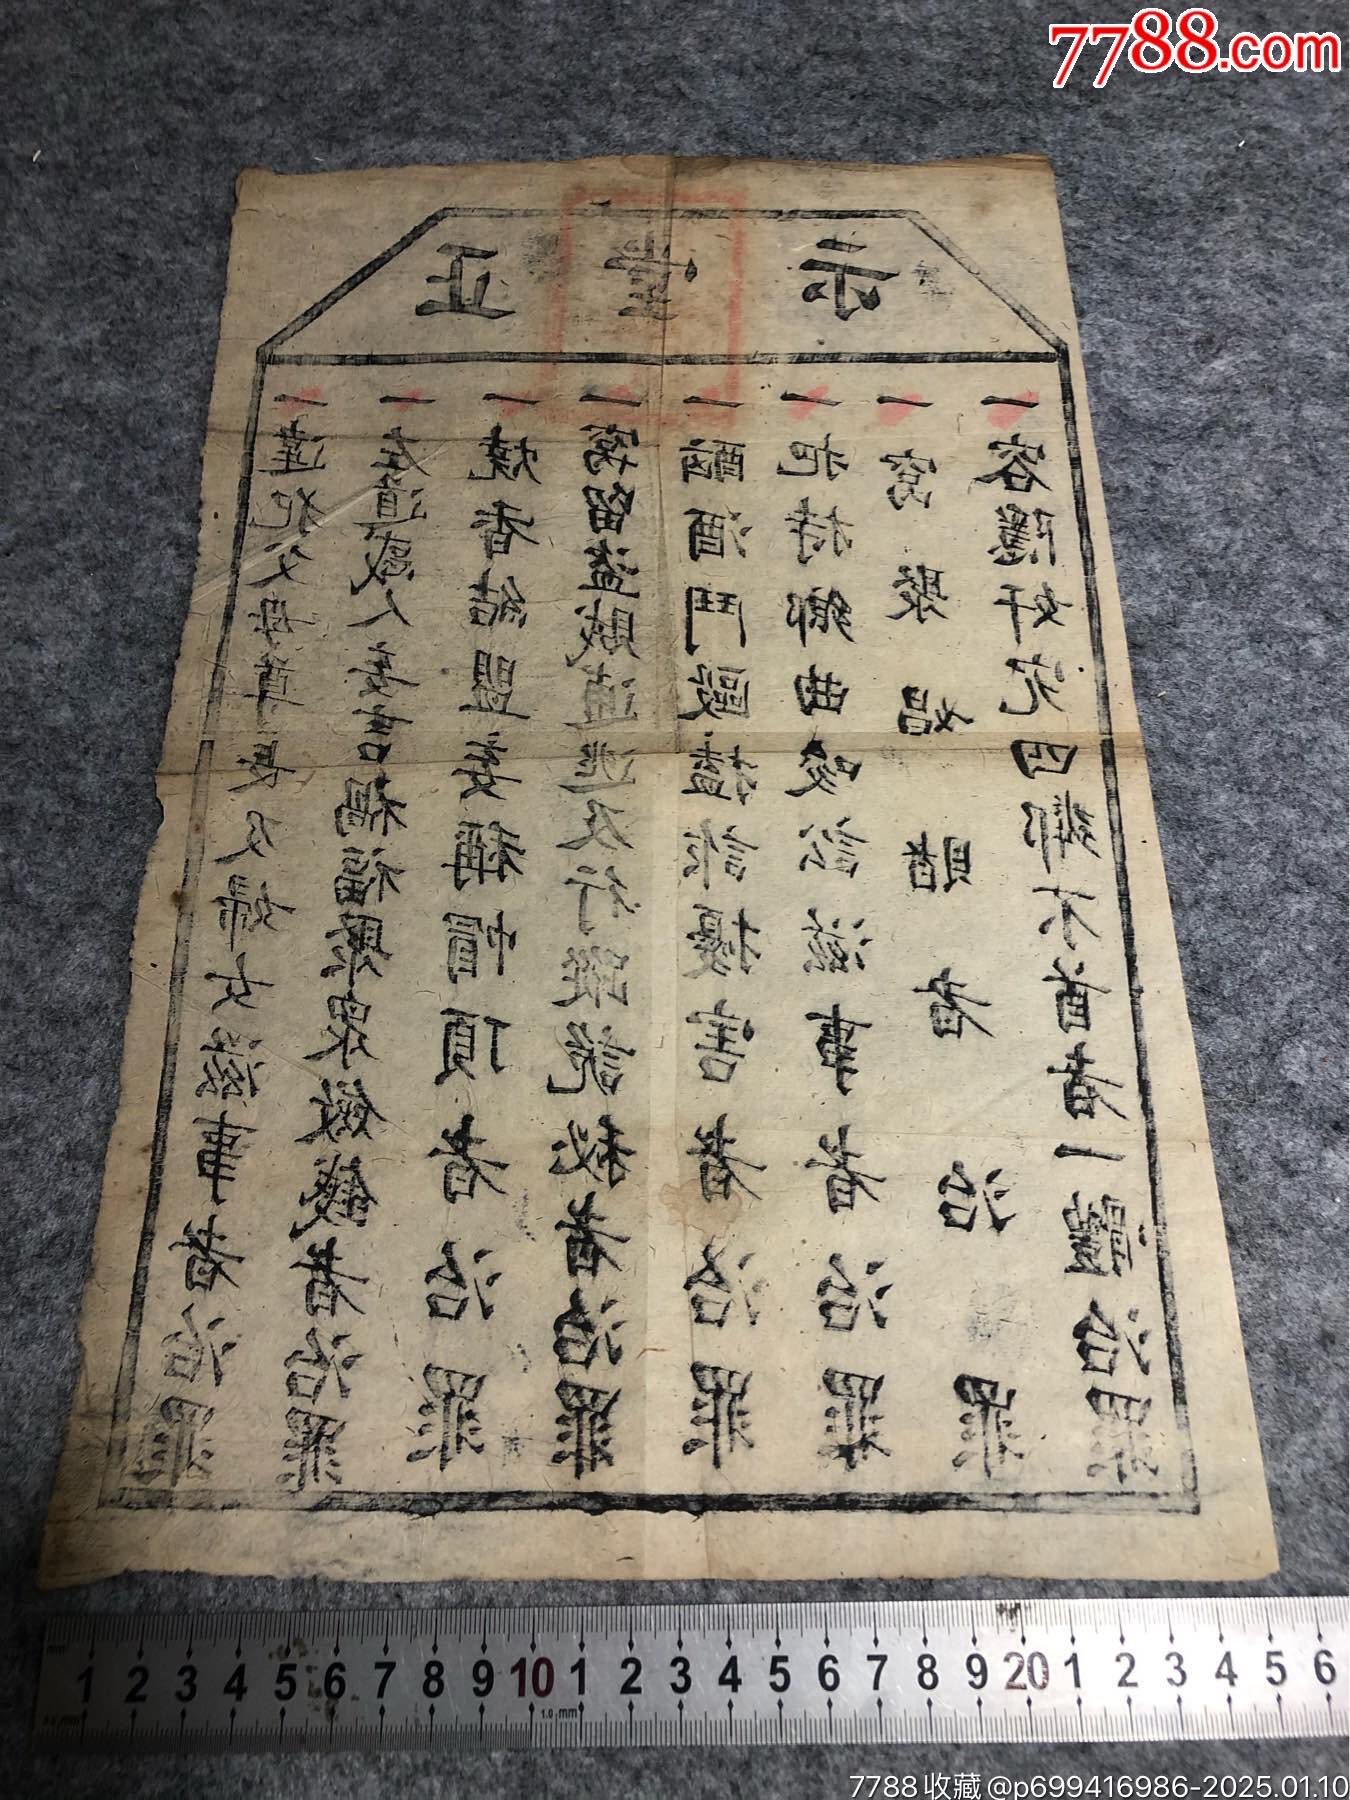 7788.com
正堂示
一違犯父母尊長及婦女滋事者治罪
一左道惑人妄言禍福聚眾斂錢者治罪
一燒香結盟妄稱帽頂者治罪
一窩留盜賊逋逃及行蹤詭秘者治罪
一酗酒鬥毆搕詐擾害者治罪
一把持鄉曲唆訟滋事者治罪
一窩聚娼賭者治罪
一容隱奸宄四鄰不首者一體治罪
1 2 3 4 5 6 7 8 9 10 1 2 3 4 5 6 7 8 9 20 1 2 3 4 5 6
1.0 mm
7788收藏@p699416986-2025.01.10